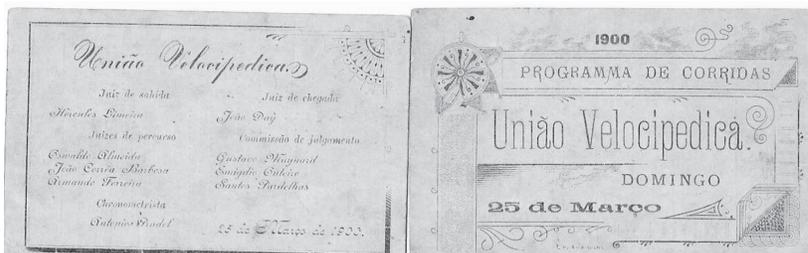 União Velocipedica.
Juiz de sahida
Hercules Limeira
Juizes de percurso
Oswaldo Almeida
João Corrêa Barbosa
Armando Ferreira
Chronometrista
Antonios
Juiz de chegada
João Day
Commissão de julgamento
Gustavo Maynard
Emigdio
Santos Pardelhas
25 de Março de 1900.
1900
PROGRAMMA DE CORRIDAS
União Velocipedica.
DOMINGO
25 de Março